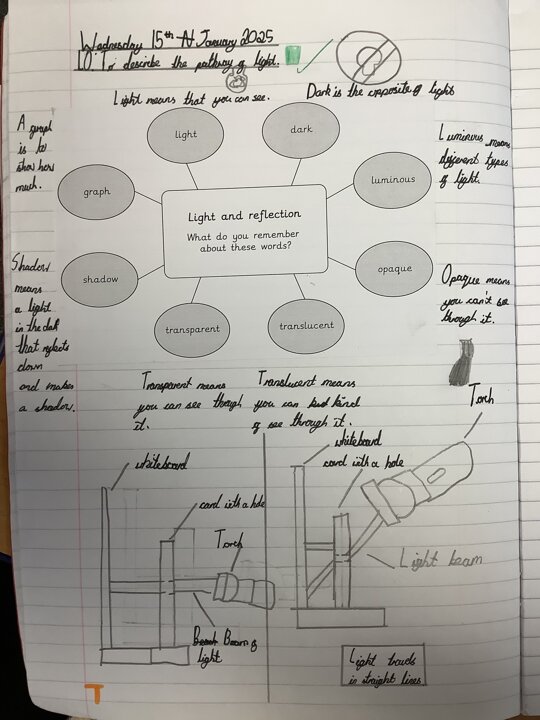 Wednesday 15th January 2025
LO: To describe the pathway of light.
Light means that you can see.
Dark is the opposite of light
A graph
is to
show how
much.
light
dark
Luminous means
different types
of light.
graph
luminous
Light and reflection
What do you remember
about these words?
Shadow
means
a light
in the dark
that reflects
down
and makes
a shadow.
shadow
opaque
Opaque means
you can't see
through it.
transparent
translucent
Transparent means
you can see through
it.
Translucent means
you can kind
of see through it.
Torch
whiteboard
card with a hole
Torch
Beam of
light
whiteboard
card with a hole
Light beam
Light travels
in straight lines
T